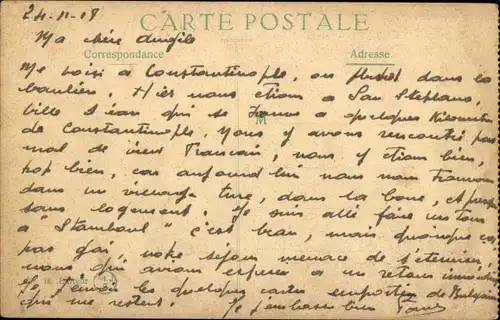 24-11-18
CARTE POSTALE
Ma chère
Correspondance
Adresse
Me voici à Constantinople, ou plutôt dans la
banlieu. Hier nous étions à San Stephano,
ville qui se trouve à quelques kilomètres
de Constantinople. Nous y avons rencontré pas
mal de vieux Francais, nous y étions bien,
trop bien, car aujourd'hui nous nous trouvons
dans un village turc, dans la boue, et presque
sans logement. Je suis allé faire un tour
à "Stamboul" c'est beau, mais quoique ce
pas gai, notre séjour menace de s'éterniser,
nous qui avions espéré à un retour
Je les quelques cartes de Bulgarie
qui me restent. Je t'embrasse bien